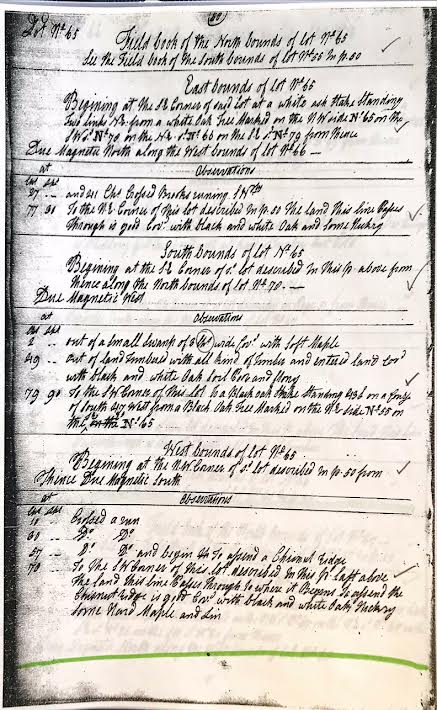 Lot No 65
Field book of the North bounds of lot No 65
See the Field book of the South bounds of lot No 55 In p. 50
East bounds of lot No 65
Begining at the S E Corner of said Lot at a white ash Stake Standing
two links N E from a white Oak Tree Marked on the N W side No 65 on the
S W So No 70 on the N E So No 66 on the S E So No 79 from thence
Due Magnetic North along the West bounds of lot No 66 —
at Observations
Chs Lks
27 -- and 41 Chs Crossed Brooks running S W
77 To the N E Corner of this lot described In p. 50 The land this line Passes
through is good Cov'd with black and white Oak and Some Hickry
South bounds of lot No 65
Begining at the S E Corner of sd lot described In this p. above from
thence along the North bounds of lot No 70. —
Due Magnetic West
at Observations
Chs Lks
2 -- out of a Small Swamp of wide Cov'd with Soft Maple
49 -- out of land timbered with all kind of timber and enter'd land Cov'd
with black and white Oak and Stony
79 90 To the S W Corner of this lot a Black oak Stake Standing on a
of South West from a Black Oak Tree Marked on the N E side No 55 on
the No 65
West bounds of lot No 65
Begining at the N W Corner of sd lot described in p. 50 from
thence Due Magnetic South
at Observations
Chs Lks
10 Crossed a run
60 -- Do Do
67 -- Do Do and begin to assend a Chesnut Ridge
78 To the S W Corner of this lot described In this p. last above
The land this line Passes through to where it Begins to assend the
Chesnut Ridge is good Cov'd with black and white Oak, Hickry
Some Hard Maple and Lin